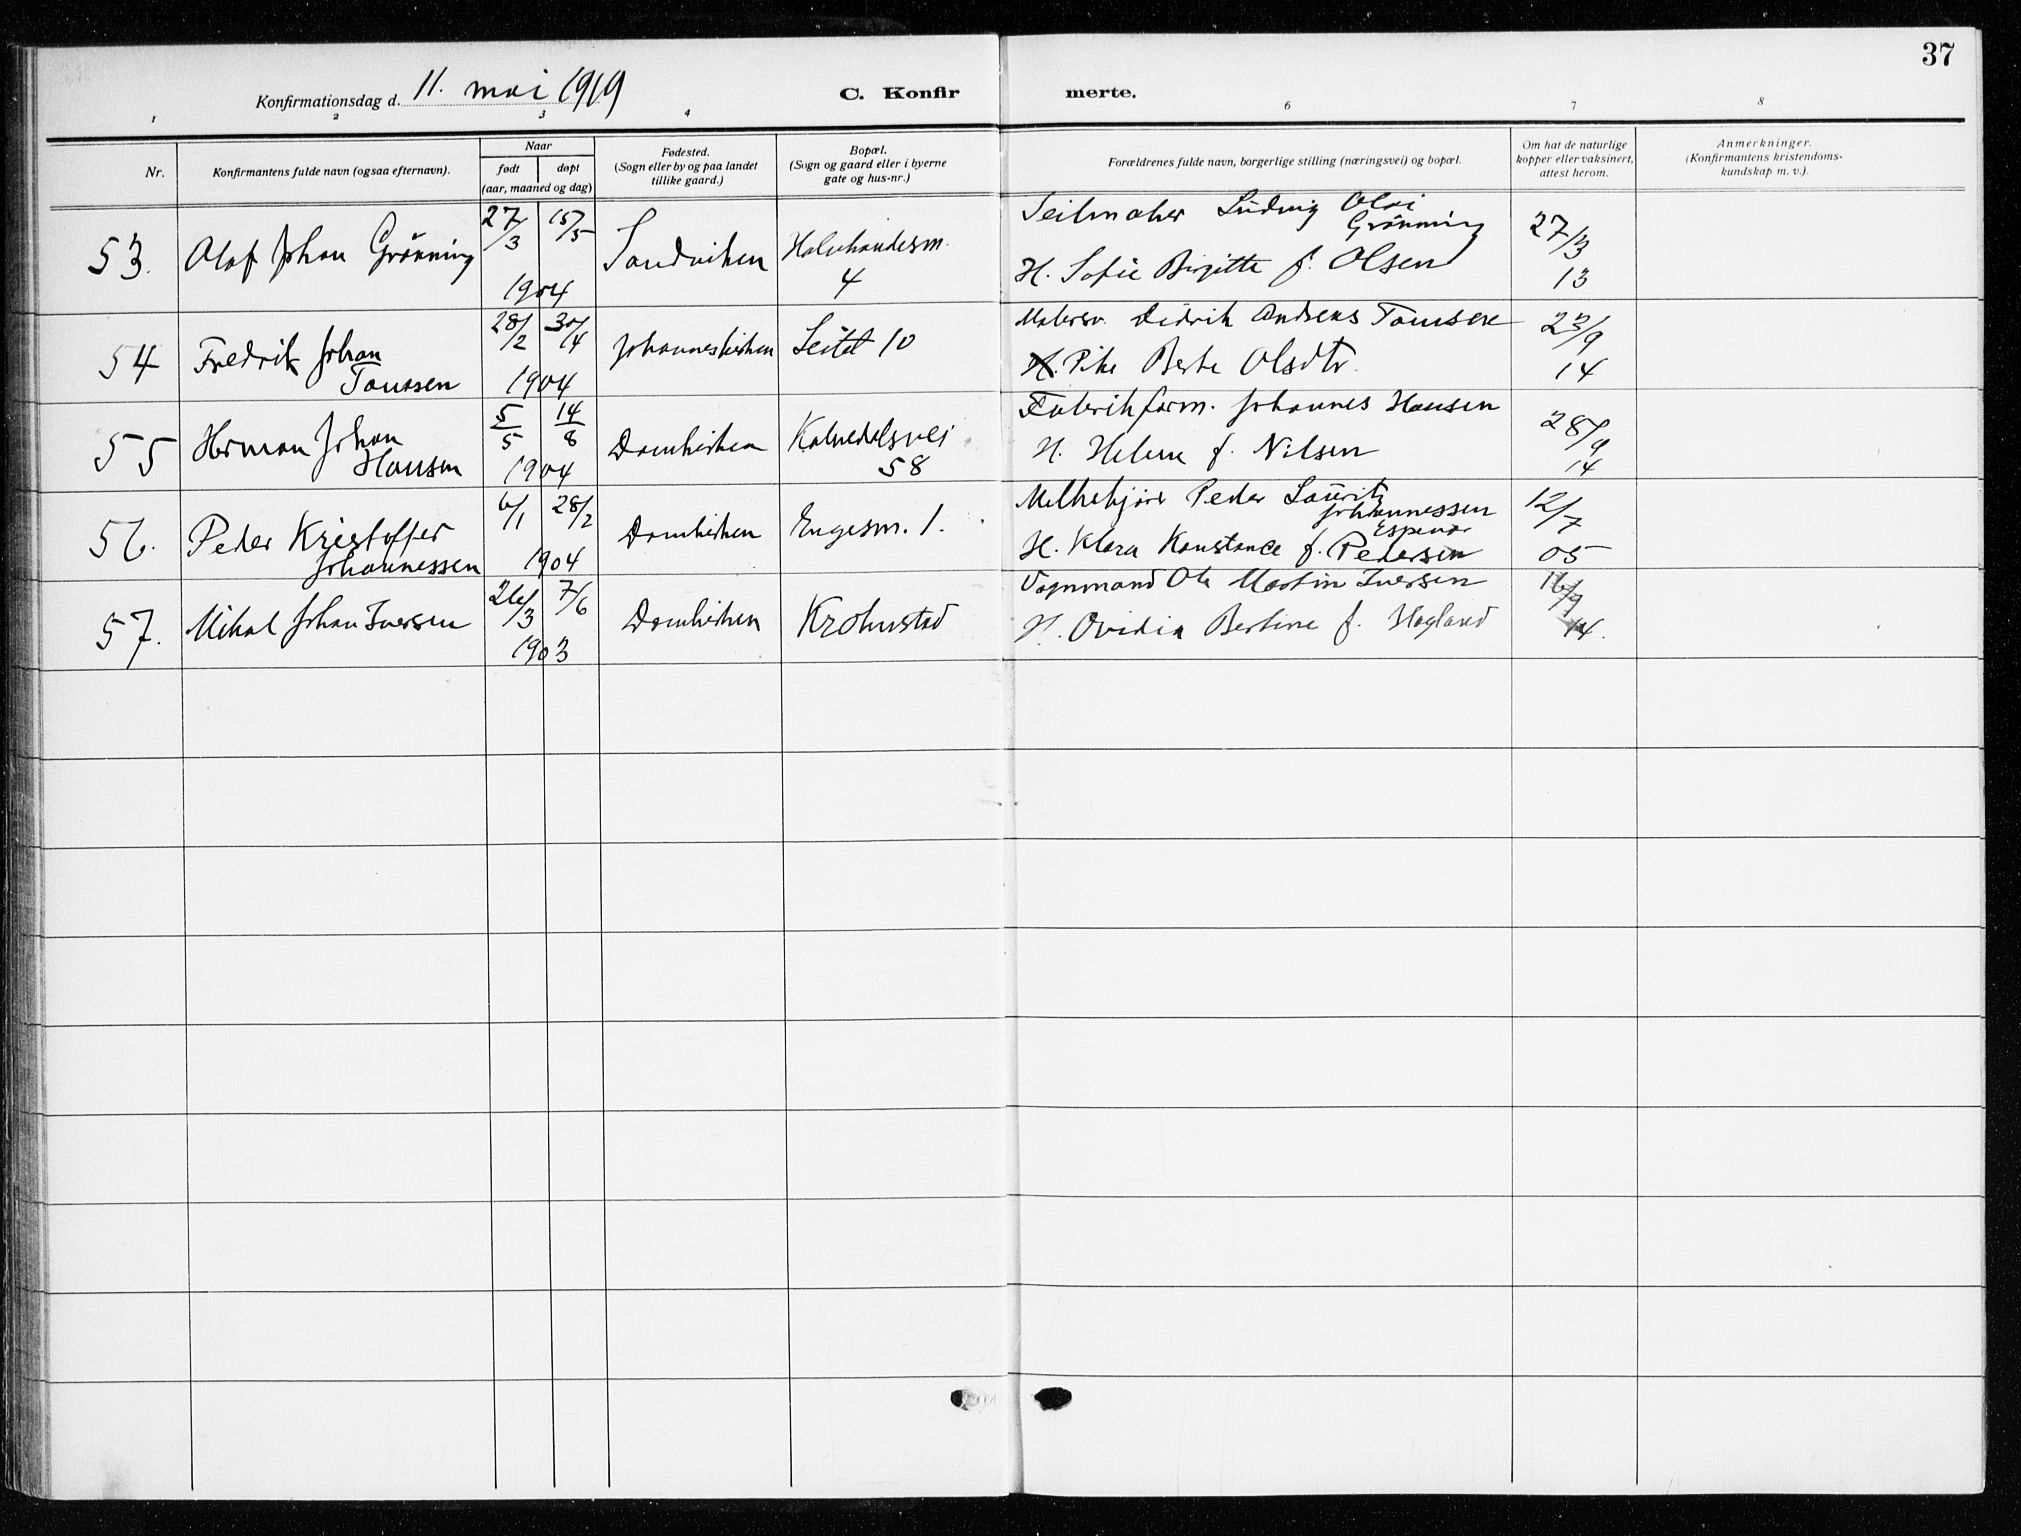 37
Konfirmationsdag d. 11. mai 1919
C. Konfir merte.
1 2 3 4 6 7 8
Nr.
Konfirmantens fulde navn (ogsaa efternavn).
Naar
født døpt
(aar, maaned og dag)
Fødested.
(Sogn eller by og paa landet
tillike gaard.)
Bopæl.
(Sogn og gaard eller i byerne
gate og hus-nr.)
Forældrenes fulde navn, borgerlige stilling (næringsvei) og bopæl.
Om hat de naturlige
kopper eller vaksinert,
attest herom.
Anmerkninger.
(Konfirmantens kristendoms-
kundskap m. v.).
53. Olaf Johan Grönning
27/3 15/5
1904
Sandviken
4
Seilmaker Ludvig Olai
Grönning
H. Sofie Birgitte f. Olsen
27/3
13
54 Fredrik Johan
Tonssen
28/2 30/4
1904
Johanneskirken
Leitet 10
Didrik Andreas
H. Pike Berte Olsdtr.
23/9
14
55 Herman Johan
Hansen
5/5 14/8
1904
Domkirken
Kalvedalsvei
58
Fabrikform. Johannes Hansen
H. Helene f. Nilsen
28/9
14
56. Peder Kristoffer
Johannessen
6/1 28/2
1904
Domkirken
Engesm. 1.
Peder Lauritz
Johannessen
Espenor
H. Klara Konstance f. Pedersen
12/7
05
57. Mikal Johan Iversen
26/3 7/6
1903
Domkirken
Krohnstad
Vognmand Ole Martin Iversen
H. Ovidia Bertine f. Hagland
16/9
14.